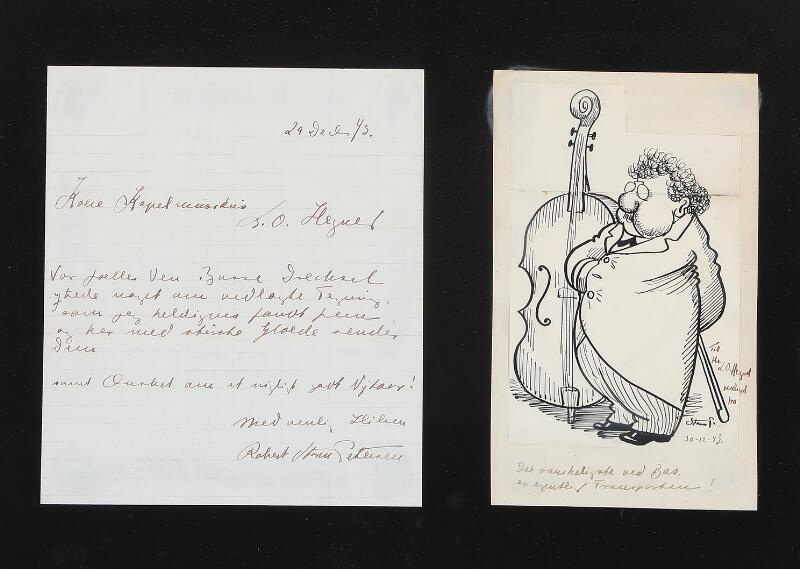 29 Dec. 43.
Kære Kapelmusikus
L. O. Hegner
Vor fælles Ven Busse Drechsel
ytede noget om vedlagte Tegning,
som jeg heldigvis fandt frem
og her med største Glæde sender
Dem
samt Ønsket om et rigtigt godt Nytaar!
Med venlig Hilsen
Robert Storm Petersen
Til
Hr. L. O. Hegner
venligst
fra
Storm P.
30-12-43.
Det vanskeligste ved Bas.
er egentlig Transporten!